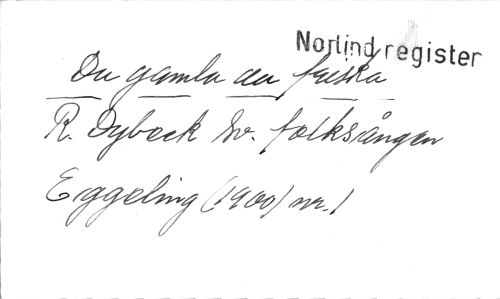 Norlind register
Du gamla du friska
R. Dybeck Sv. folksången
Eggeling (1900) nr. 1